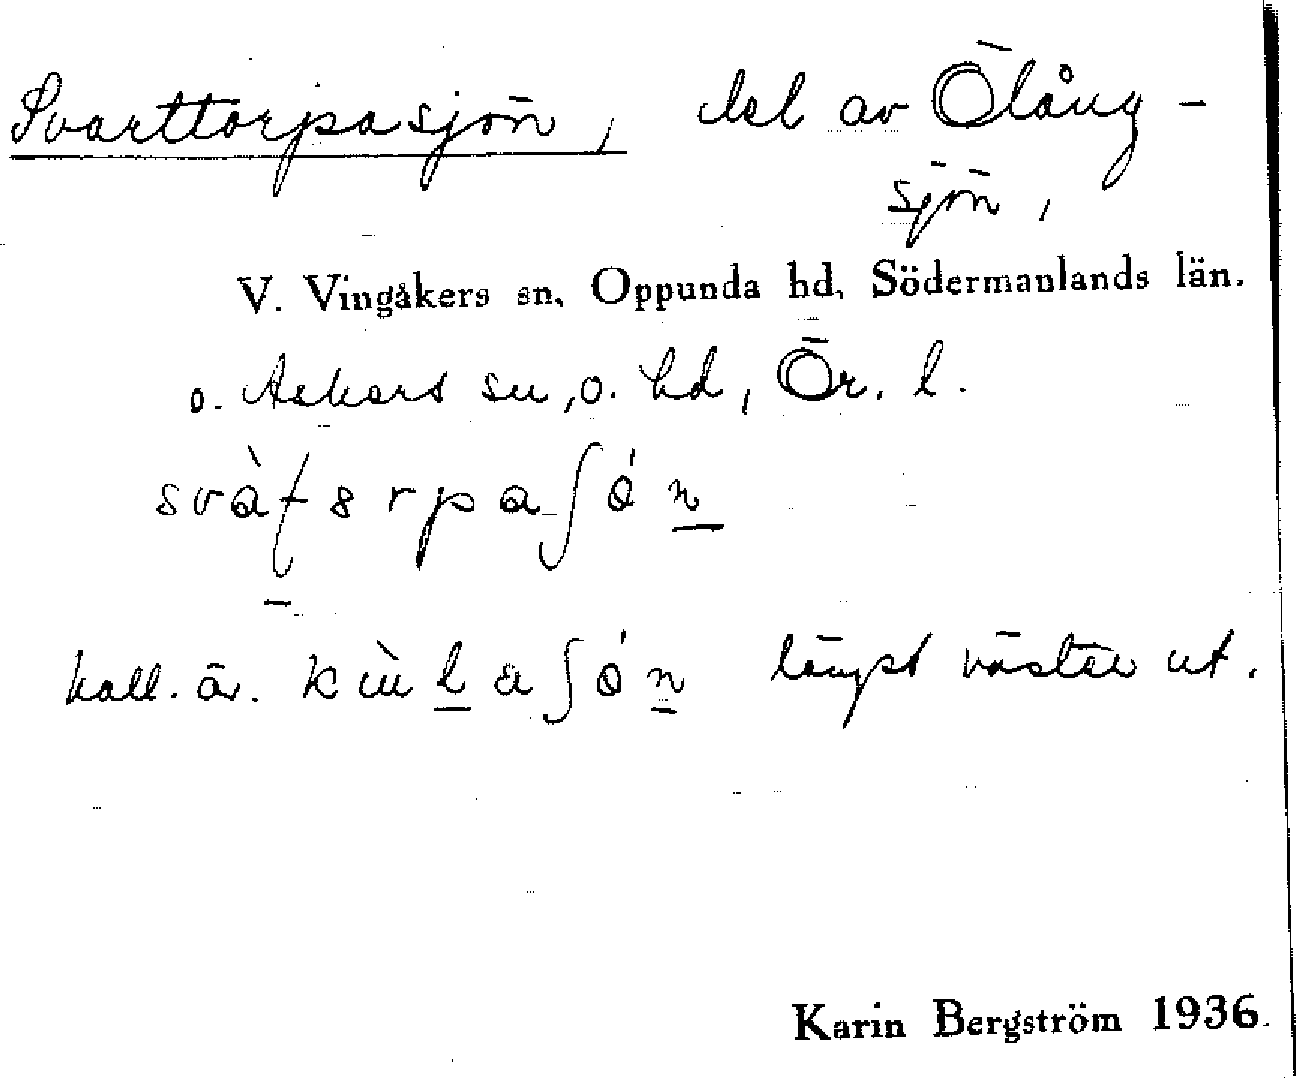 Svarttorpasjön, del av Ölång-
sjön,
V. Vingåkers sn, Oppunda hd, Södermanlands län.
o. Askers sn, o. hd, Ör. l.
svàt8rpaʃón
kall. äv. kùlaʃón längst väster ut.
Karin Bergström 1936.